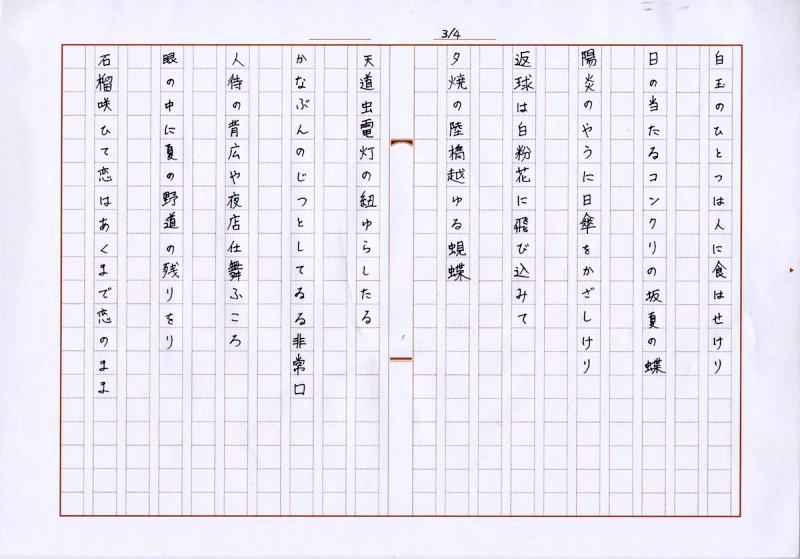 3/4
白玉のひとつは人に食はせけり
日の当たるコンクリの坂夏の蝶
陽炎のやうに日傘をかざしけり
返球は白粉花に飛び込みて
夕焼の陸橋越ゆる蜆蝶
天道虫電灯の紐ゆらしたる
かなぶんのじつとしてゐる非常口
人待の背広や夜店仕舞ふころ
眼の中に夏の野道の残りをり
石榴咲ひて恋はあくまで恋のまま